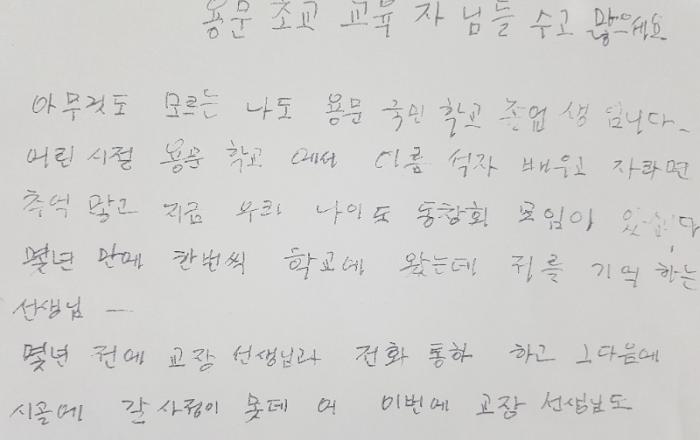 용문 초교 교육 자 님들 수고 많으세요
아무것도 모르는 나도 용문 국민 학교 졸업 생 입니다.
어린 시절 용문 학교 에서 이름 석자 배우고 자라면
추억 많고 지금 우리 나이도 동창회 모임이 있습니다
몇년 만에 한번씩 학교에 왔는데 저를 기억 하는
선생님 —
몇년 전에 교장 선생님과 전화 통화 하고 그다음에
시골에 갈 사정이 못데 어 이번에 교장 선생님도